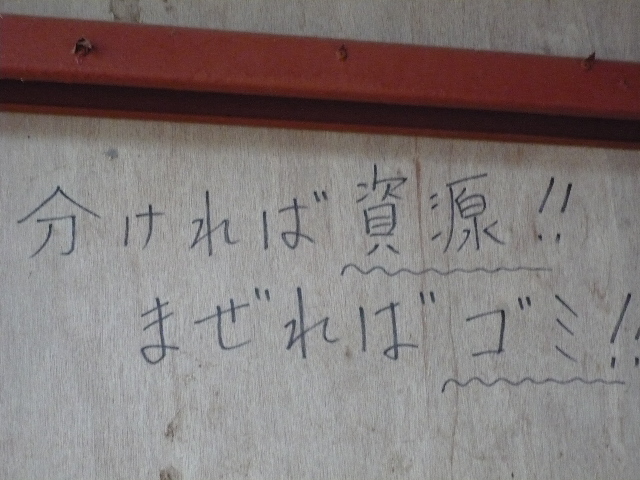 分ければ資源!!
まぜればゴミ!!